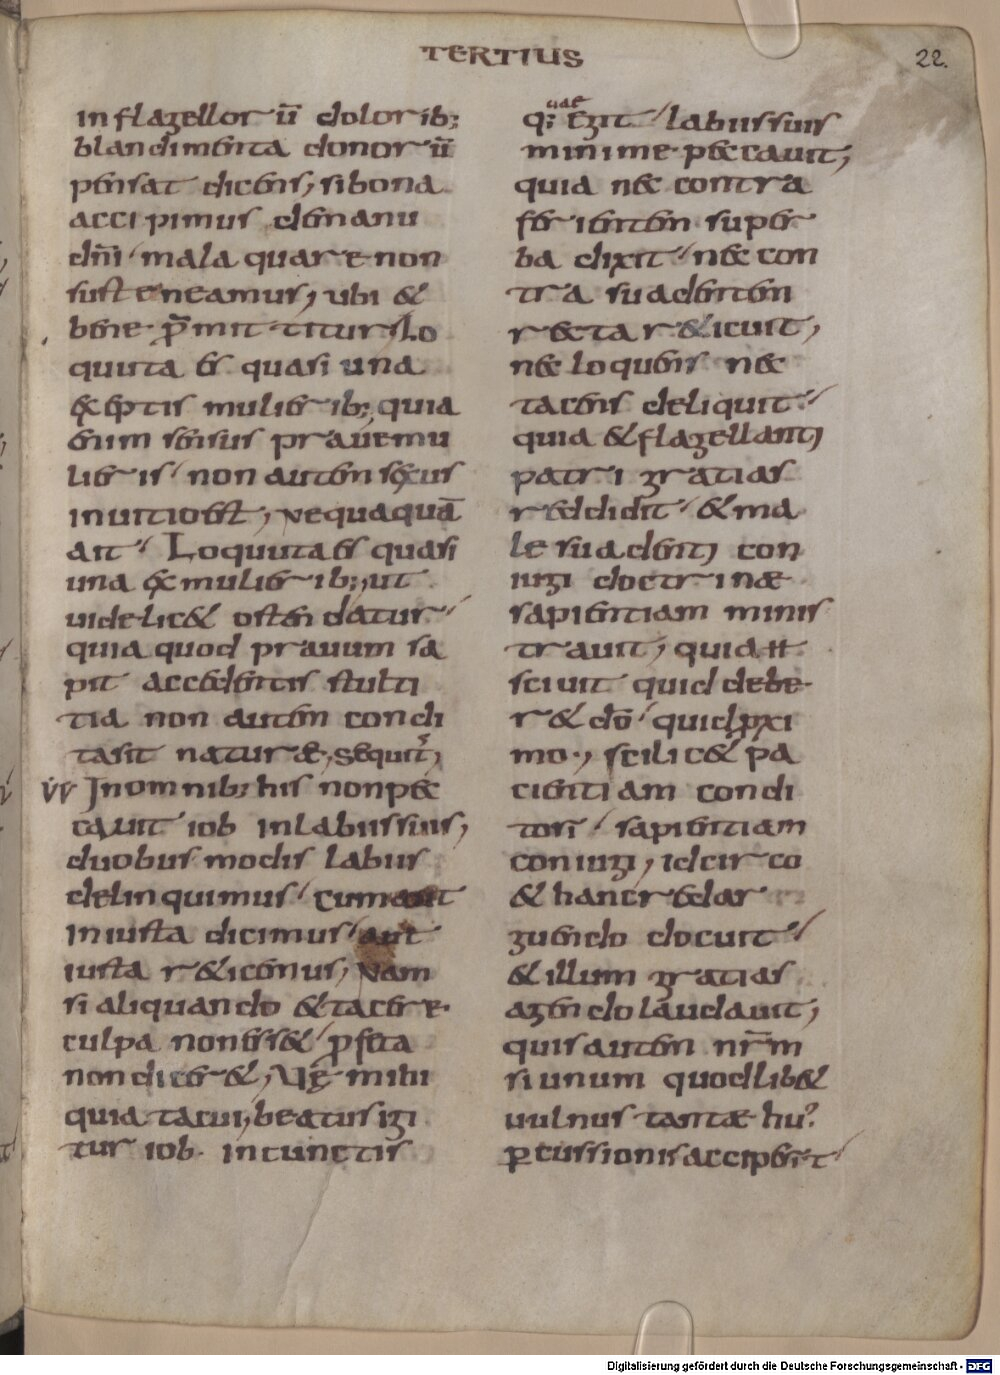 TERTIUS
22.
in flagellorū dolorib;
blandimenta donorū
pensat dicens, si bona
accipimus demanu
dn̄i mala quare non
sustineamus, ubi &
bene p̄mittitur, Lo
quuta es quasi una
exeptis mulierib; quia
enim sensus prauemu
lieris non autem sexus
inuitioest, nequaquā
ait Loquuta es quasi
una exmulierib; ut
uidelic& ostendatur
quia quod prauum sa
pit accedentis stulti
tia non autem condi
tasit naturae, sequit᷑,
Inomnib; his nonpec
cauit iob inlabiis suis,
duobus modis labiis
delinquimus cum aut
iniusta dicimus aut
iusta r&icemus, Nam
si aliquando &tacere
culpa non ess& profeta
non dicer&, Vę mihi
quia tacui, beatus igi
tur iob in cunctis
uae
q; egit labiis suis
minime peccauit,
quia nec contra
ferientem super
ba dixit nec con
tra suadentem
recta r&icuit,
nec loquens nec
tacens deliquit
quia &flagellanti
patri gratias
reddidit &ma
le suadenti con
iugi doctrinae
sapientiam minis
trauit, quia H
sciuit quid debe
r& dō quid pxi
mo, scilic& pa
cientiam condi
tori sapientiam
coniugi, idcirco
& hanc redar
guendo docuit
& illum gratias
agendo laudauit,
quis autem nr̄m
si unum quodlib&
uulnus tantae hu?
ꝑcussionis acciperet